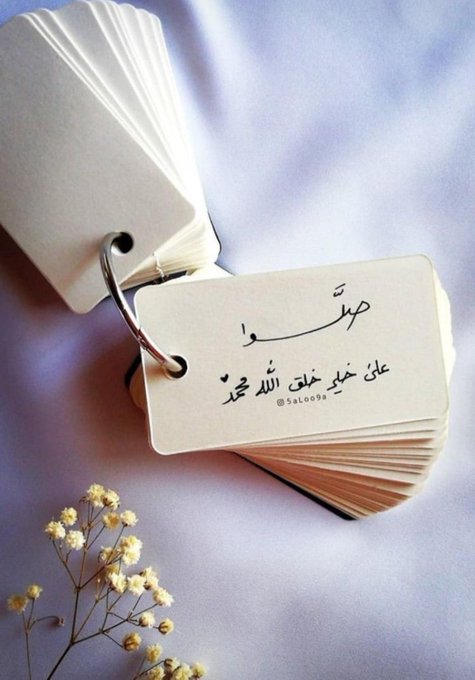 صلَّوا
على خير خلق الله محمد ♥
5aLoo9a